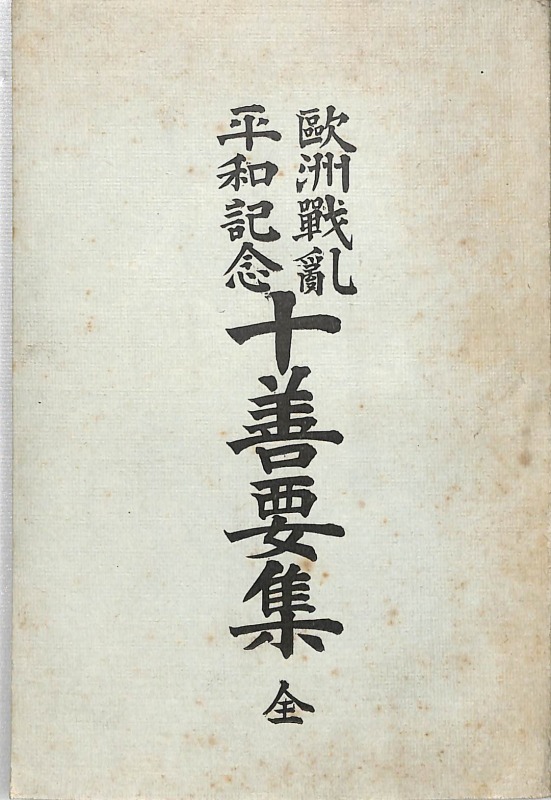 歐洲戰亂
平和記念
十善要集
全